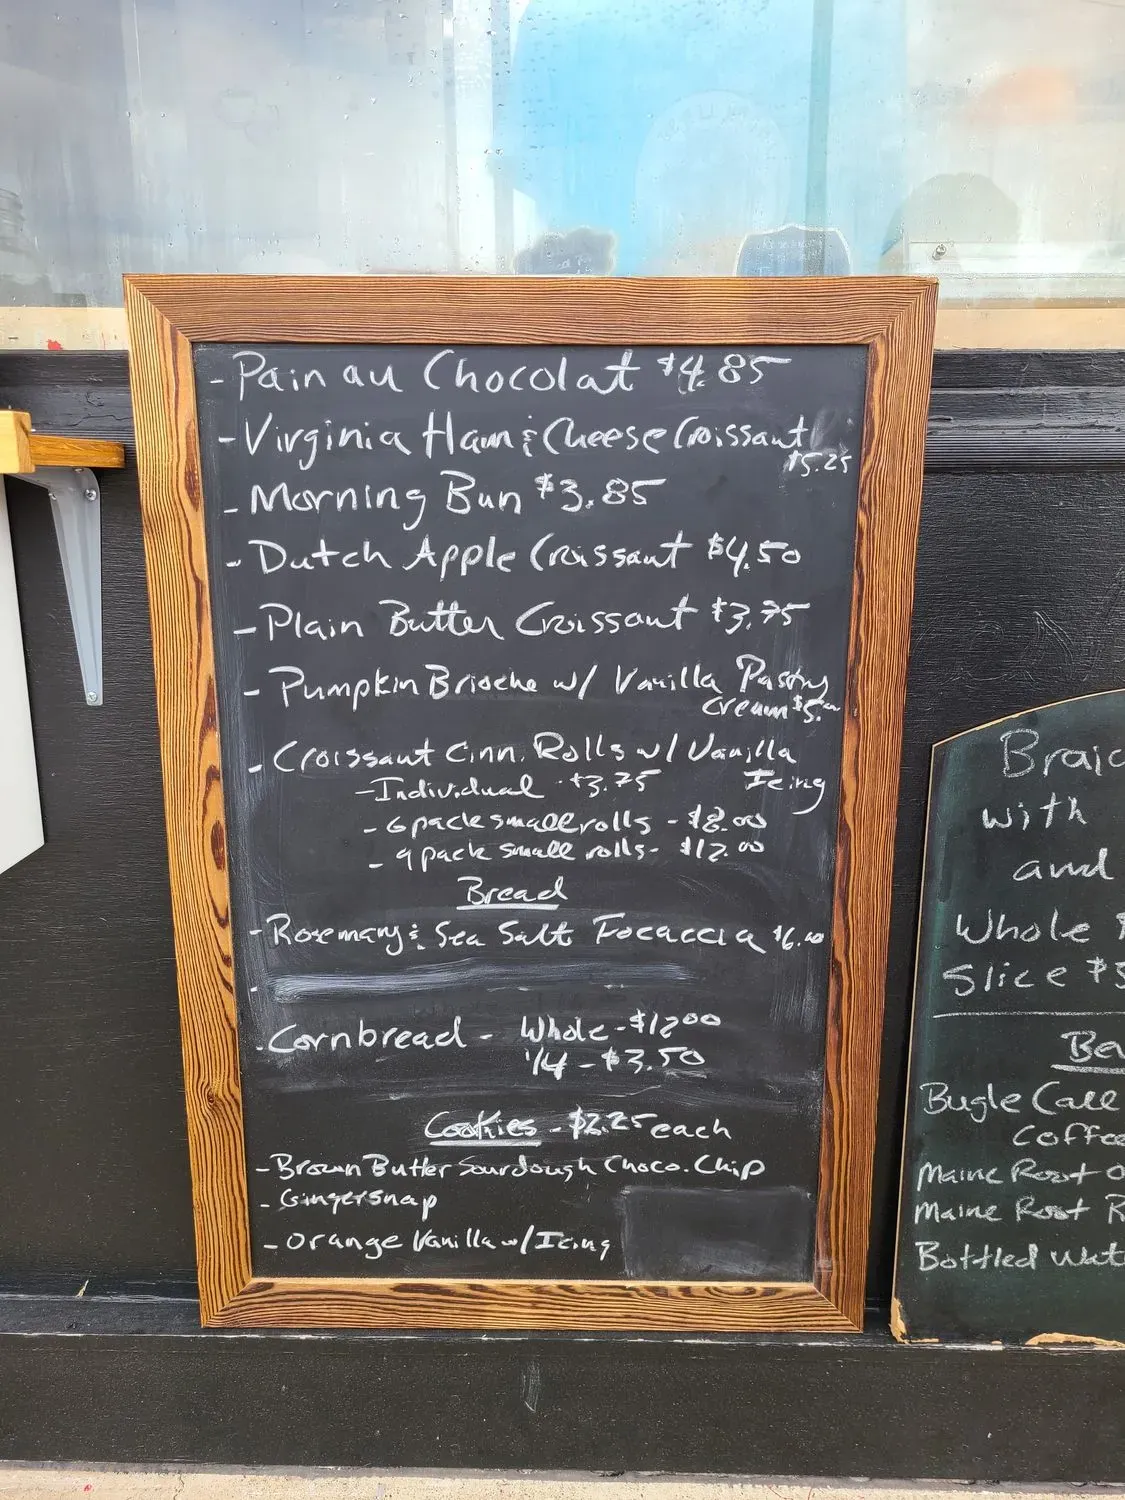 - Pain au Chocolat $4.85
- Virginia Ham & Cheese Croissant
$5.25
- Morning Bun $3.85
- Dutch Apple Croissant $4.50
- Plain Butter Croissant $3.75
- Pumpkin Brioche w/ Vanilla Pastry
Cream $5.00
- Croissant Cinn. Rolls w/ Vanilla
Icing
- Individual - $3.75
- 6 pack small rolls - $8.00
- 9 pack small rolls - $12.00
Bread
- Rosemary & Sea Salt Focaccia $6.00
-
- Cornbread - Whole - $12.00
1/4 - $3.50
Cookies - $2.25 each
- Brown Butter Sourdough Choco. Chip
- Gingersnap
- Orange Vanilla w/ Icing
with
and
Whole
Slice $5
Bugle Call
Coffee
Maine Root
Maine Root R
Bottled Wat